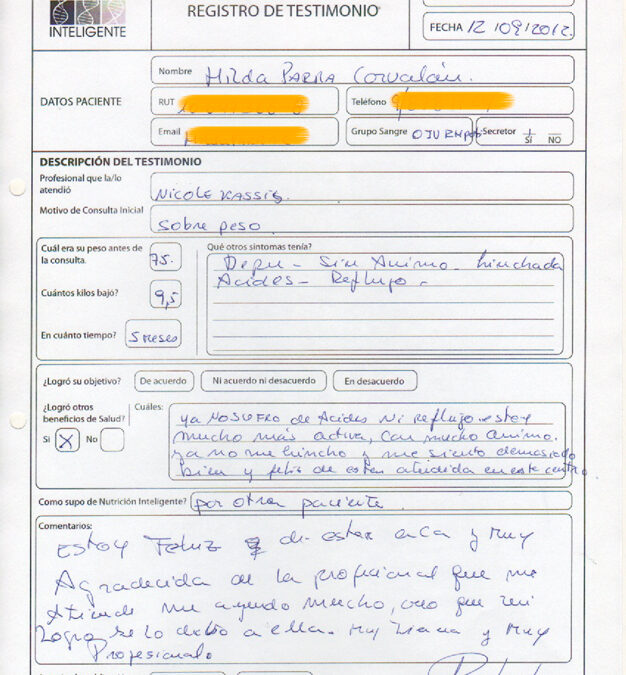 INTELIGENTE
REGISTRO DE TESTIMONIO
FECHA 12/09/2012.
DATOS PACIENTE
Nombre Hilda Parra Corvalán.
RUT
Teléfono
Email
Grupo Sangre
Secretor + SI — NO
DESCRIPCIÓN DEL TESTIMONIO
Profesional que la/lo
atendió
Nicole Kassis.
Motivo de Consulta Inicial
Sobre peso.
Cuál era su peso antes de
la consulta.
75.
Cuántos kilos bajó?
9,5
En cuánto tiempo?
5 meses
Qué otros sintomas tenía?
Depre - Sin Animo - hinchada
Acides - Reflujo -
¿Logró su objetivo?
De acuerdo
Ni acuerdo ni desacuerdo
En desacuerdo
¿Logró otros
beneficios de Salud?
Si X No
Cuáles:
ya NO SUFRO de Acides Ni Reflujo. estoy
mucho más activa, con mucho animo.
ya no me hincho y me siento demasiado
bien y feliz de estar atendida en este centro
Como supo de Nutrición Inteligente?
por otra paciente
Comentarios:
Estoy Feliz de estar acá y muy
Agradecida de la profecional que me
Atiende me ayudo mucho, creo que mi
Logro se lo debo a ella. muy y muy
Profesional.